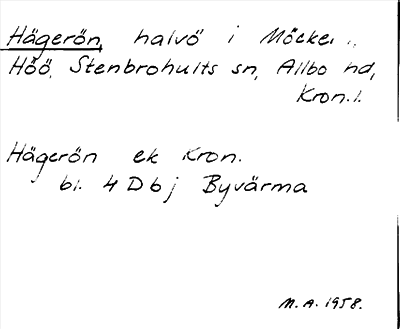 Hägerön, halvö i Möckeln,
Höö, Stenbrohults sn, Allbo hd,
Kron.l.
Hägerön ek Kron.
bl. 4 D b j Byvärma
M.A. 1958.